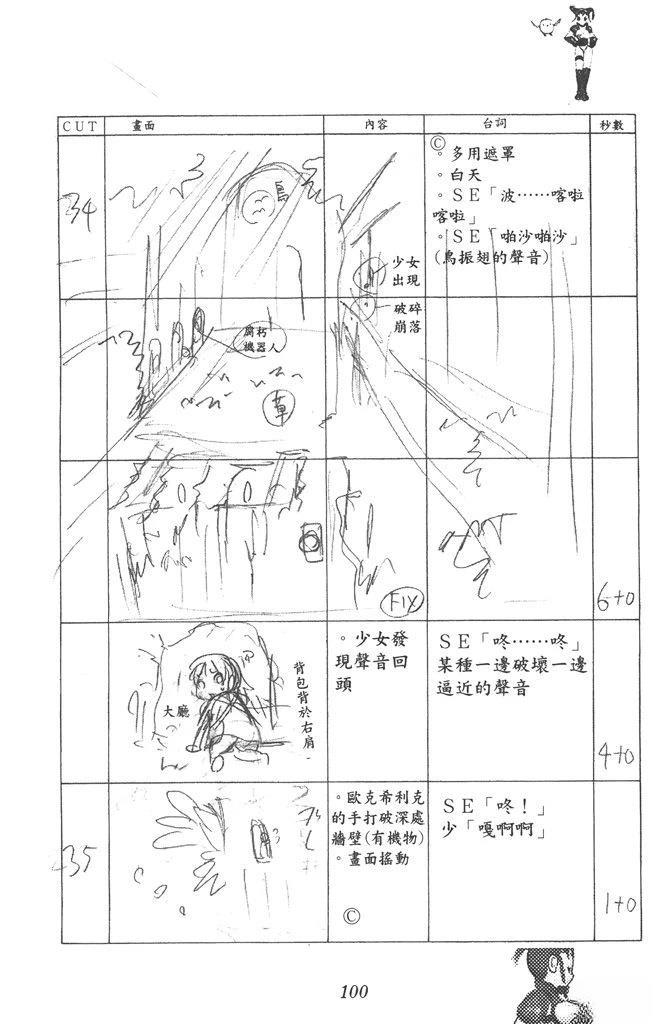 CUT 畫面 內容 台詞 秒數
34
鳥
少女
出現
Ⓒ
。多用遮罩
。白天
。SE「波……喀啦
喀啦」
。SE「啪沙啪沙」
(鳥振翅的聲音)
腐朽
機器人
破碎
崩落
草
FIX
6+0
大廳
背包背於右肩
。少女發
現聲音回
頭
SE「咚……咚」
某種一邊破壞一邊
逼近的聲音
4+0
35
。歐克希利克
的手打破深處
牆壁(有機物)
。畫面搖動
Ⓒ
SE「咚！」
少「嘎啊啊」
1+0
100